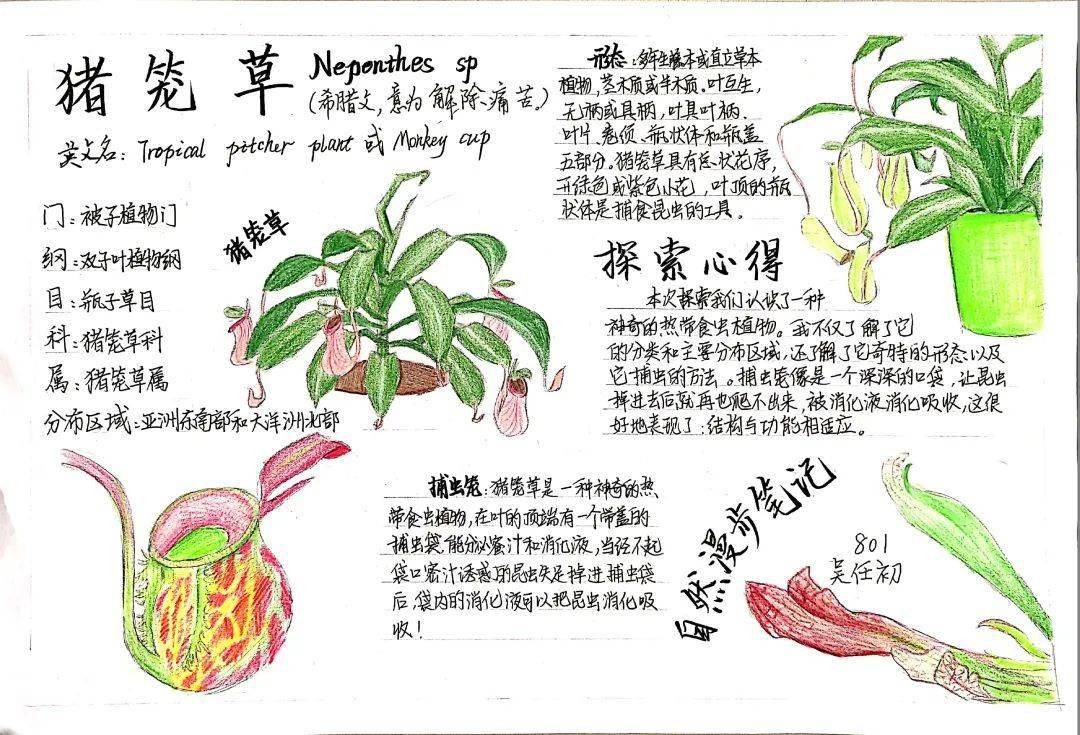 猪笼草
Neponthes sp
(希腊文,意为解除、痛苦)
英文名: Tropical pitcher plant 或 Monkey cup
门:被子植物门
纲:双子叶植物纲
目:瓶子草目
科:猪笼草科
属:猪笼草属
分布区域:亚洲东南部和大洋洲北部
猪笼草
形态:多年生藤本或直立草本
植物,茎木质或半木质.叶互生,
无柄或具柄,叶具叶柄、
叶片、卷须、瓶状体和瓶盖
五部分。猪笼草具有总状花序,
开绿色或紫色小花,叶顶的瓶
状体是捕食昆虫的工具。
探索心得
本次探索我们认识了一种
神奇的热带食虫植物。我不仅了解了它
的分类和主要分布区域,还了解了它奇特的形态以及
它捕虫的方法。捕虫笼像是一个深深的口袋,让昆虫
掉进去后就再也爬不出来,被消化液消化吸收,这很
好地表现了:结构与功能相适应。
捕虫笼:猪笼草是一种神奇的热
带食虫植物,在叶的顶端有一个带盖的
捕虫袋.能分泌蜜汁和消化液,当经不起
袋口蜜汁诱惑的昆虫失足掉进捕虫袋
后,袋内的消化液可以把昆虫消化吸
收!
自然漫步笔记
801
吴任初